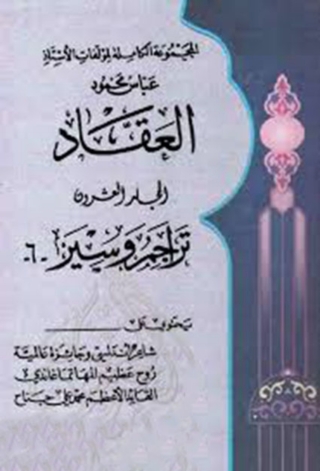 المجموعة الكاملة لمؤلفات الأستاذ
عباس محمود
العقاد
المجلد العشرون
تراجم وسير -٦-
يحتوي على
شاعر أندلسي وجائزة عالمية
روح عظيم المهاتما غاندي
القائد الأعظم محمد علي جناح